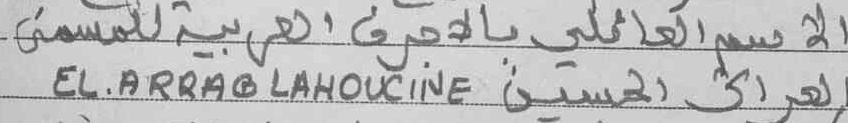 الاسم العائلي بالاحرف العربية للمسمى
العراب الحسين EL.ARRAB LAHOUCINE